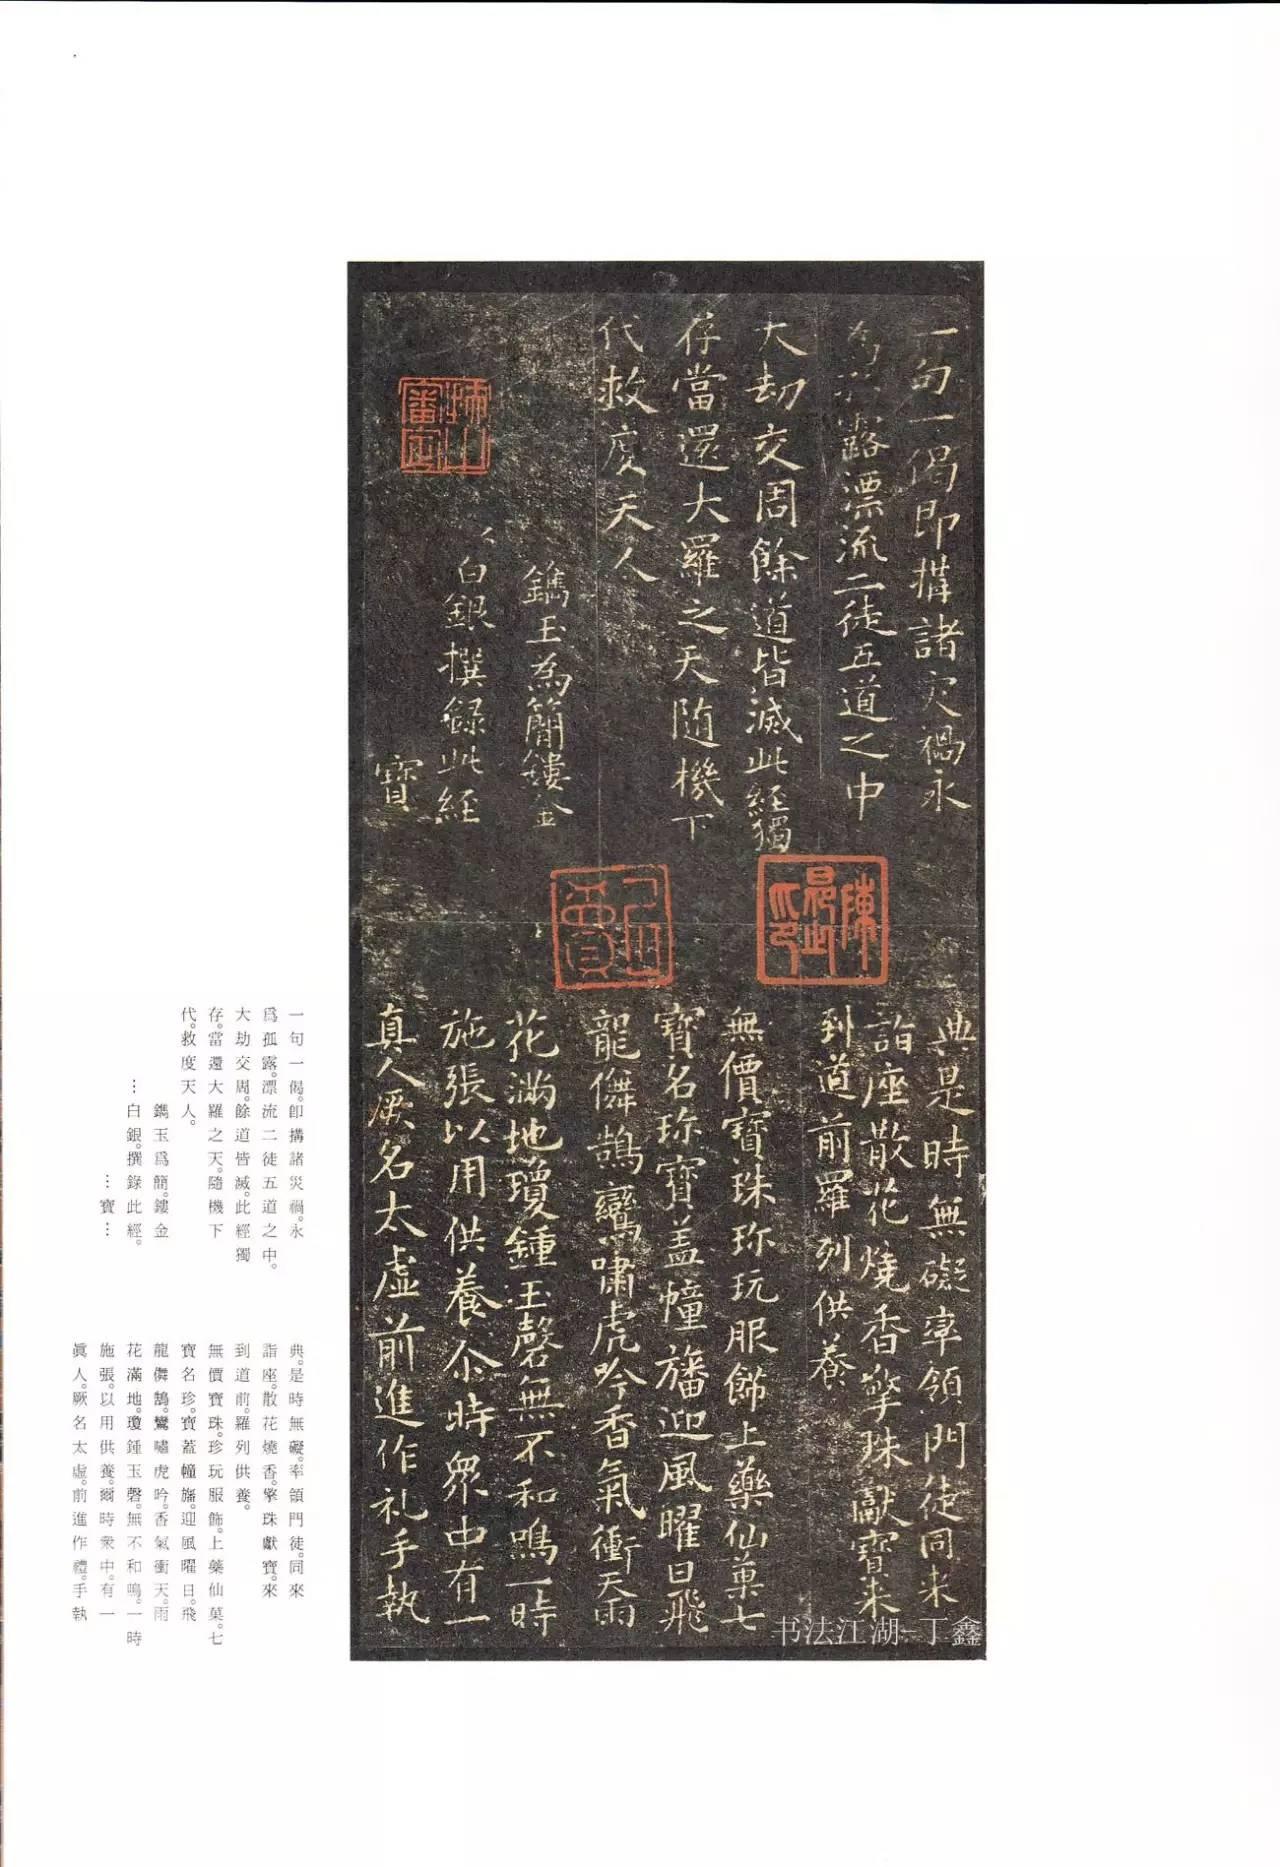 一句一偈即搆諸灾禍永
為孤露漂流二徒五道之中
大劫交周餘道皆滅此経獨
存當還大羅之天随機下
代救度天人
鐫玉為簡鏤金
白銀撰録此経
寶
典是時無礙率領門徒同来
詣座散花燒香擎珠獻寶来
到道前羅列供養
無價寶珠珎玩服飾上藥仙菓七
寳名珎寳盖幢旛迎風曜日飛
龍儛鵠鸞嘯虎吟香氣衝天雨
花滿地瓊鍾玉磬無不和鳴一時
施張以用供養尒時衆中有一
真人厥名太虚前進作礼手執
审定
陳
书法江湖-丁鑫
一句一偈。即搆諸災禍。永
爲孤露。漂流二徒五道之中。
大劫交周。餘道皆滅。此經獨
存。當還大羅之天。隨機下
代。救度天人。
鐫玉爲簡。鏤金
…白銀。撰錄此經。
…寶…
典。是時無礙。率領門徒。同來
詣座。散花燒香。擎珠獻寶。來
到道前。羅列供養。
無價寶珠。珍玩服飾。上藥仙菓。七
寶名珍。寶蓋幢旛。迎風曜日。飛
龍儛鵠。鸞嘯虎吟。香氣衝天。雨
花滿地。瓊鍾玉磬。無不和鳴。一時
施張。以用供養。爾時衆中。有一
眞人。厥名太虛。前進作禮。手執